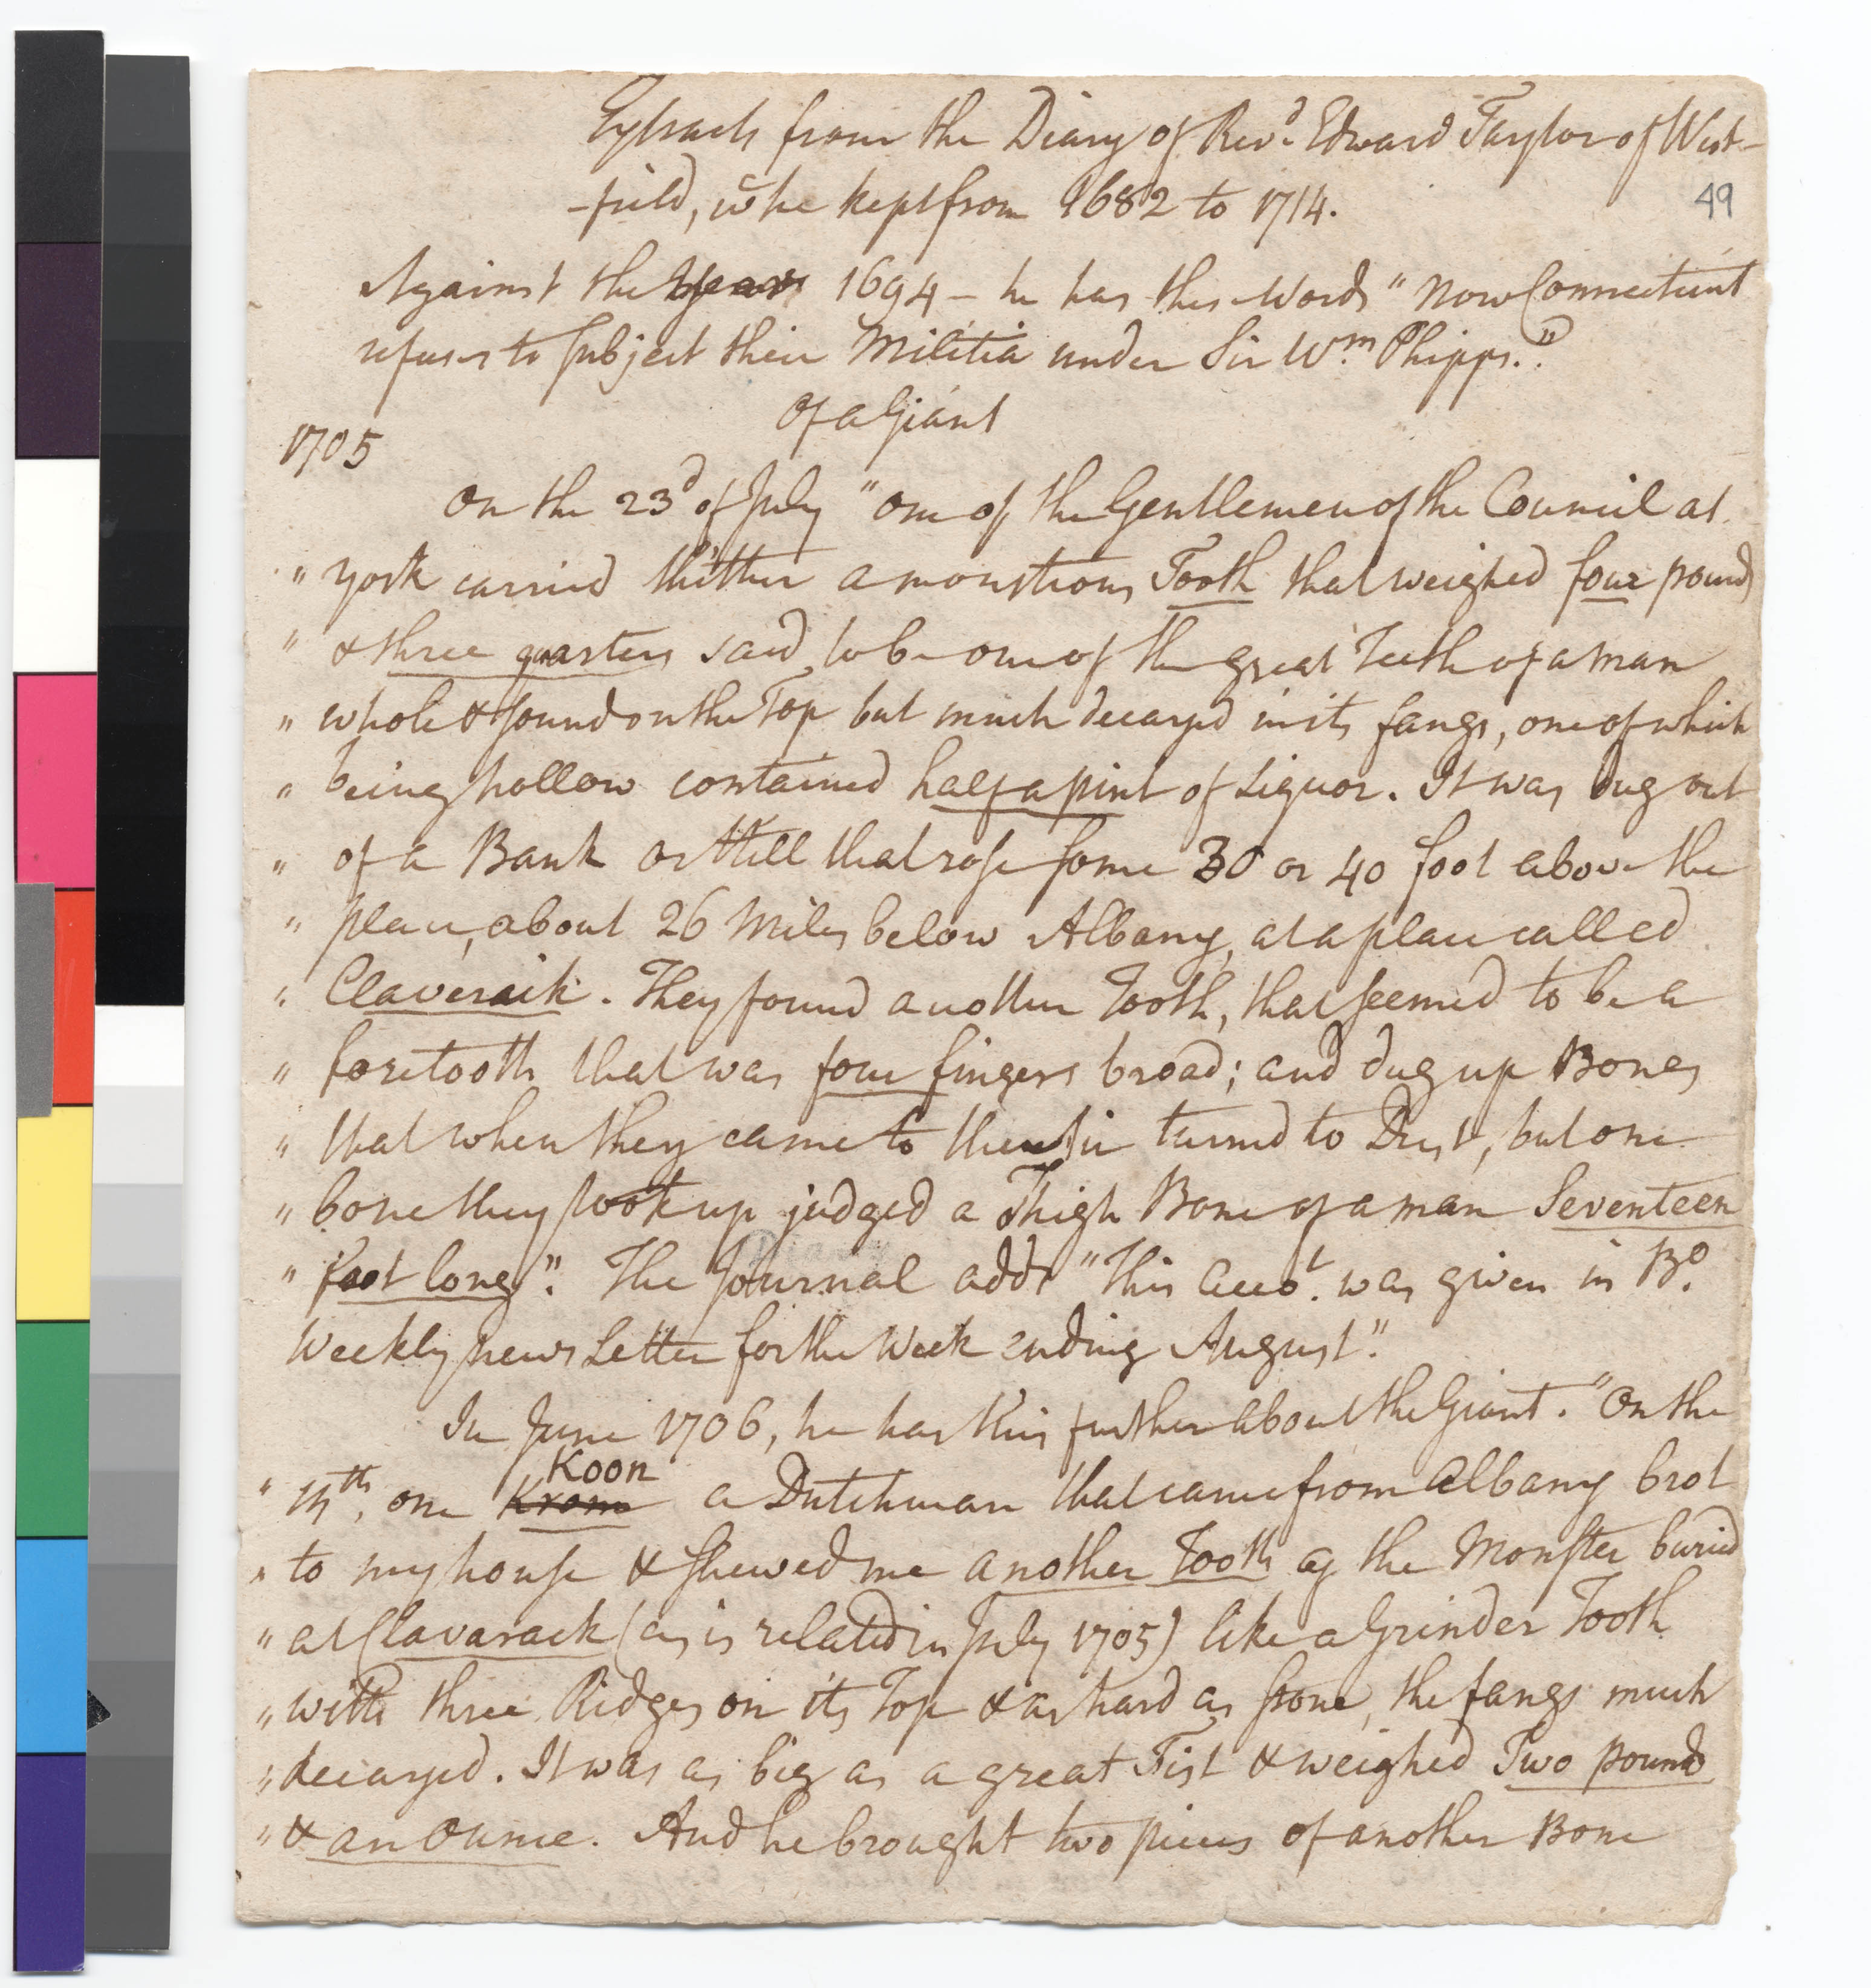 Extracts from the Diary of Revd. Edward Taylor of West-
-field, wc he kept from 1682 to 1714.
49
Against the year 1694 – he has this Words " Now Connecticut
refuses to subject their Militia under Sir Wm. Phipps."
Of a Giant
1705
On the 23d of July " one of the Gentlemen of the Council at
" York carried thither a monstrous Tooth that weighed four pound
" & three quarters said to be one of the great Teeth of a man
" whole & sound on the Top but much decayed in its fangs, one of which
" being hollow contained half a pint of Liquor. It was dug out
" of a Bank or Hill that rose some 30 or 40 foot above the
" place, about 26 Miles below Albany, at a place called
" Claverack. They found another Tooth, that seemed to be a
" foretooth that was four fingers broad; and dug up Bones
" that when they came to the Air turned to Dust, but one
" bone they took up judged a Thigh Bone of a man Seventeen
" foot long". The Journal adds "This Acco.t was given in Bo.
Weekly news Letter for the Week ending August."
In June 1706, he has this further about the Giant. "On the
Koon
" 14th, one Krom a Dutchman that came from Albany brot
" to my house & shewed me another Tooth of the Monster buried
" at Clavarack (as is related in July 1705) like a Grinder Tooth
" with three Ridges on its Top & as hard as stone, the fangs much
" decayed. It was as big as a great Fist & weighed Two pound
" & an Ounce. And he brought two pieces of another Bone